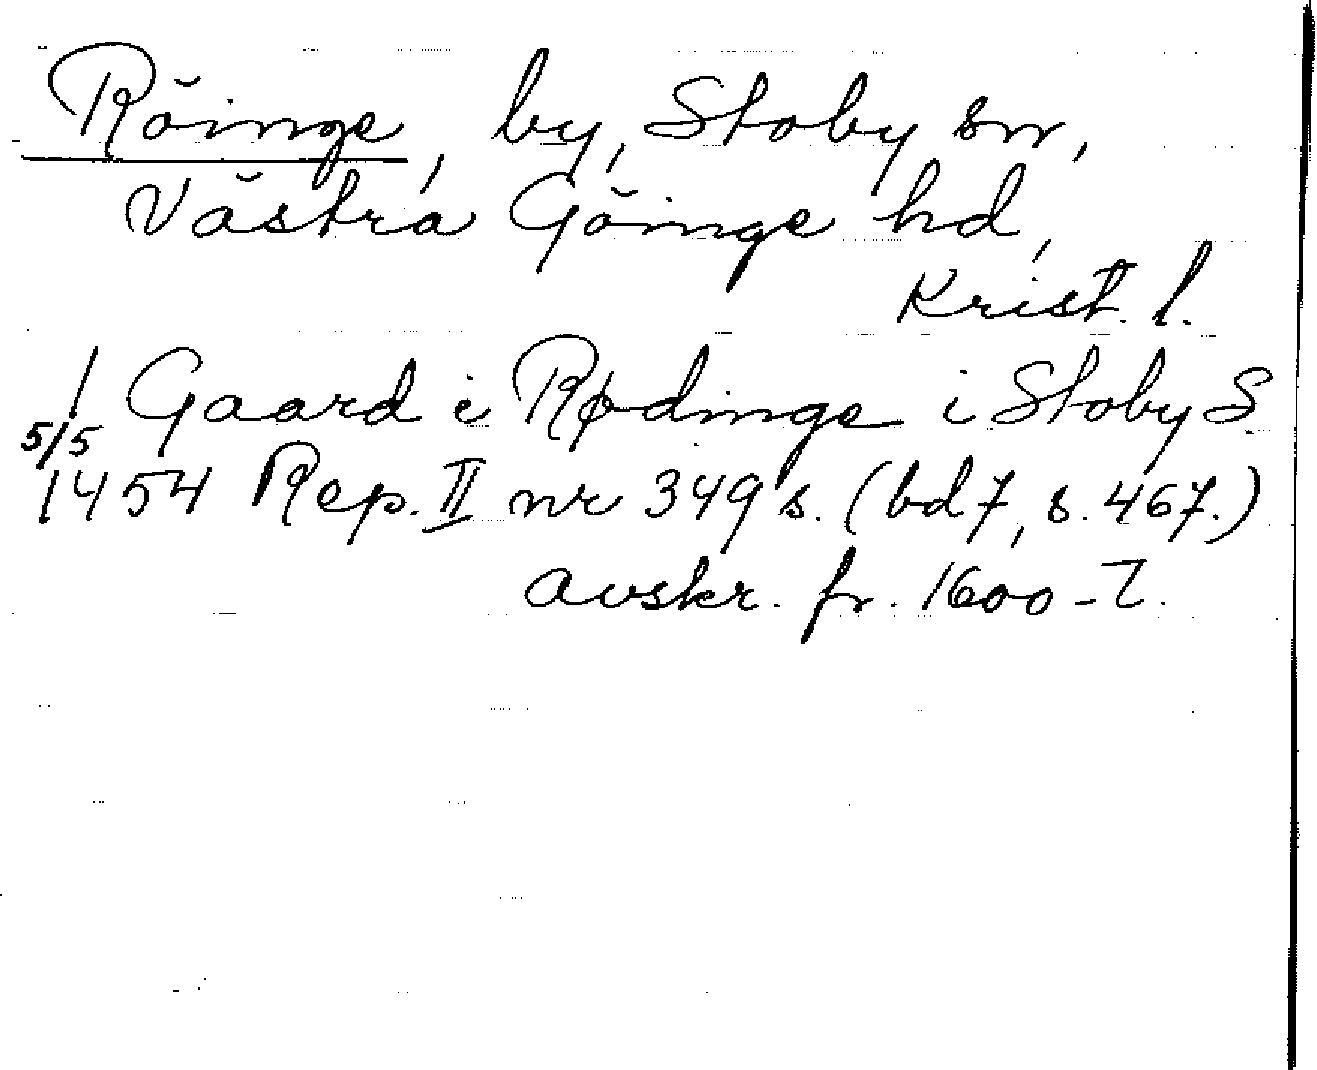 Röinge, by, Stoby sn,
Västra Göinge hd,
Krist. l.
1 Gaard i Rødinge i Stoby S
5/5 1454 Rep. II nr 349 s. (bd 7, s. 467.)
avskr. fr. 1600-t.